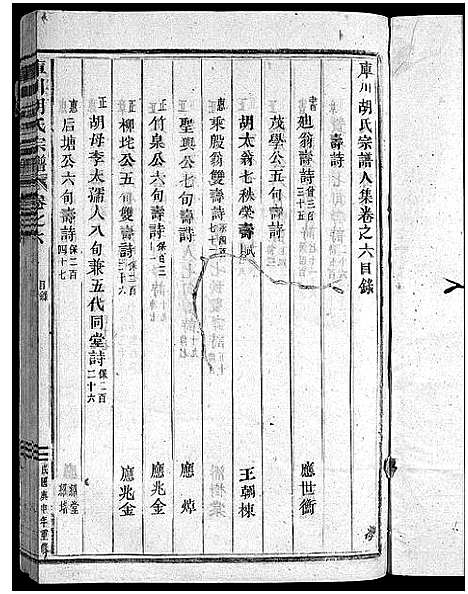 庫川胡氏宗譜人集卷之六目錄
壽詩
迪翁壽詩 應世衡
茂學公五旬壽詩
胡太翁七秩榮壽賦 王朝棟
惠 乘殷翁雙壽詩
正 聖興公七旬壽詩 應焯
正 竹泉公六旬壽詩 應兆金
正 柳垞公五旬雙壽詩 應兆金
正 胡母李太孺人八旬兼五代同堂詩 保二百二十六
惠 后塘公六旬壽詩 保二百四十七
庫川胡氏宗譜 卷之六
目錄
民國庚申年重修